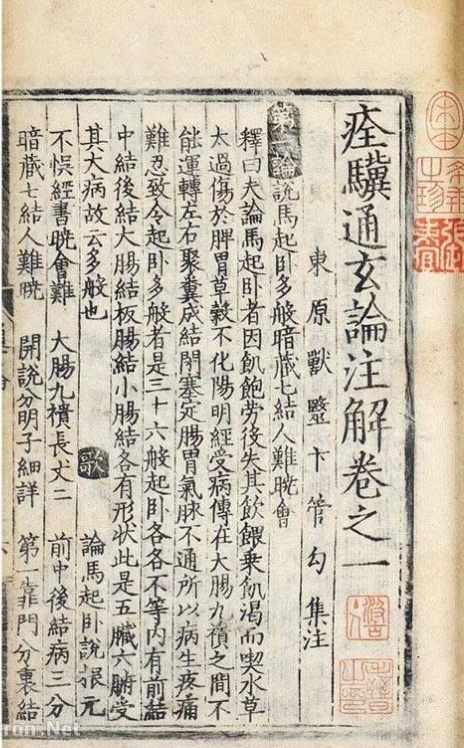 痊驥通玄論注解卷之一
東原獸毉卞管勾集注
第一論說馬起卧多般暗蔵七結人難晓會
釋曰夫論馬起卧者因飢飽勞後失其飲餵乗飢渇而喫水草
太過傷於脾胃草穀不化陽明經受病傳在大腸九積之間不
能運轉左右聚糞成結閉塞定腸胃氣脉不通所以病生疼痛
難忍致令起卧多般者是三十六般起卧各各不等内有前結
中結後結大腸結板腸結小腸結各有形状此是五臓六腑受
其大病故云多般也 歌 論馬起卧說根元
不悞經書晩會難 大腸九積長丈二 前中後結病三分
暗蔵七結人難晓 開說分明子細詳 第一靠門分裹結
ron.Net